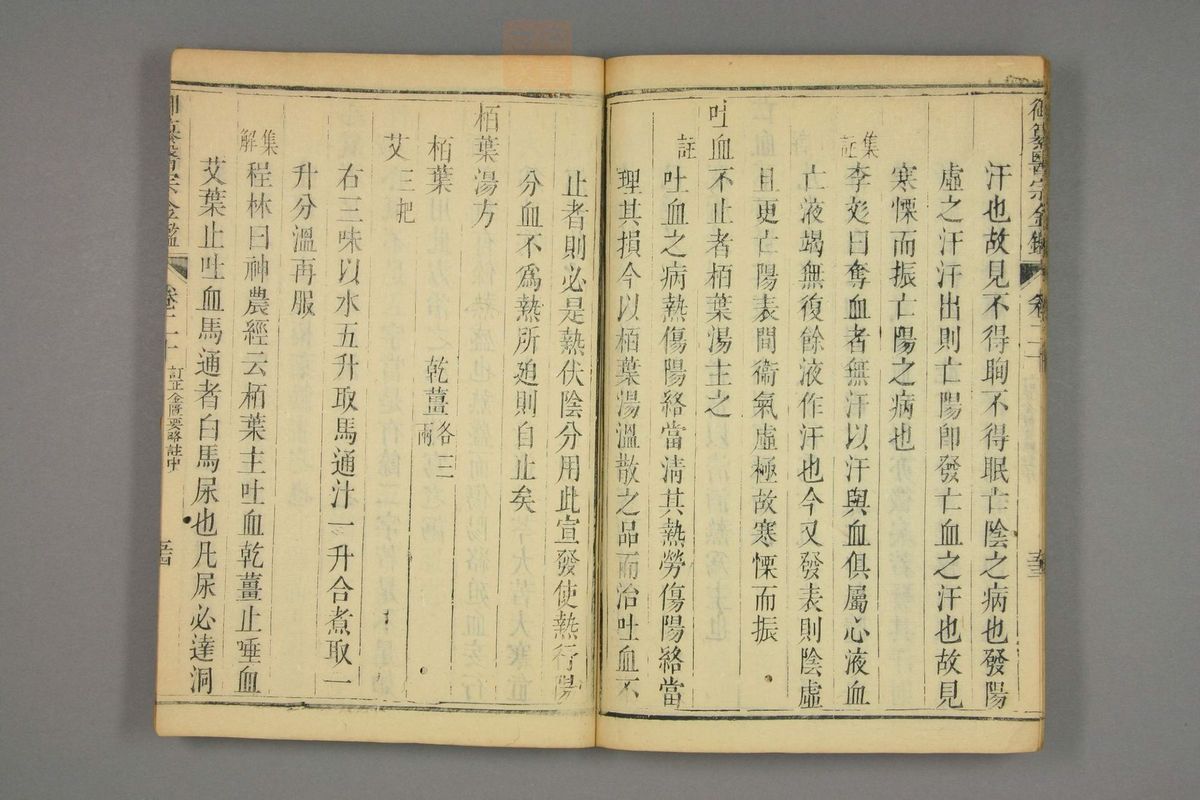 御纂醫宗金鑑 卷二十 五三
汗也故見不得眴不得眠亡陰之病也發陽
虛之汗汗出則亡陽卽發亡血之汗也故見
寒慄而振亡陽之病也
集註 李彣曰奪血者無汗以汗與血俱屬心液血
亡液竭無復餘液作汗也今又發表則陰虛
且更亡陽表間衞氣虛極故寒慄而振
吐血不止者栢葉湯主之
註 吐血之病熱傷陽絡當淸其熱勞傷陽絡當
理其損今以栢葉湯溫散之品而治吐血不
止者則必是熱伏陰分用此宣發使熱行陽
分血不爲熱所廹則自止矣
栢葉湯方
栢葉 乾薑各三兩
艾三把
右三味以水五升取馬通汁一升合煮取一
升分溫再服
集解 程林曰神農經云栢葉主吐血乾薑止唾血
艾葉止吐血馬通者白馬尿也凡尿必達洞
御纂醫宗金鑑 卷二十 訂正金匱要略註中 五四